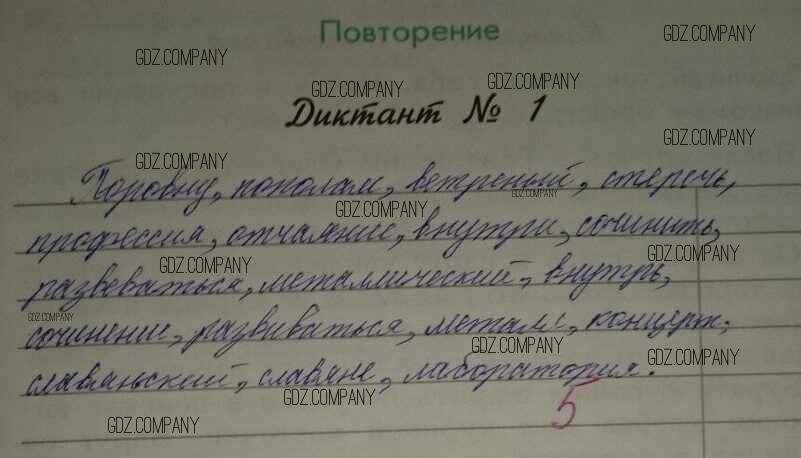 Повторение
GDZ.COMPANY
GDZ.COMPANY
GDZ.COMPANY
GDZ.COMPANY
Диктант № 1
GDZ.COMPANY
GDZ.COMPANY
Поровну, пополам, ветреный, стеречь,
GDZ.COMPANY
GDZ.COMPANY
профессия, отчаяние, внутри, сочинить,
GDZ.COMPANY
GDZ.COMPANY
развеваться, металлический, внутрь,
GDZ.COMPANY
сочинение, развиваться, металл, концерт,
GDZ.COMPANY
GDZ.COMPANY
славянский, славяне, лаборатория.
GDZ.COMPANY
5
GDZ.COMPANY